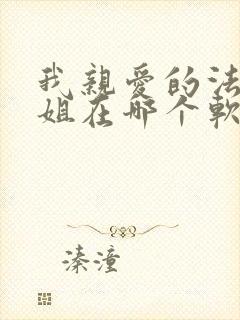 我親愛的法
姐在哪个軟
溱潼